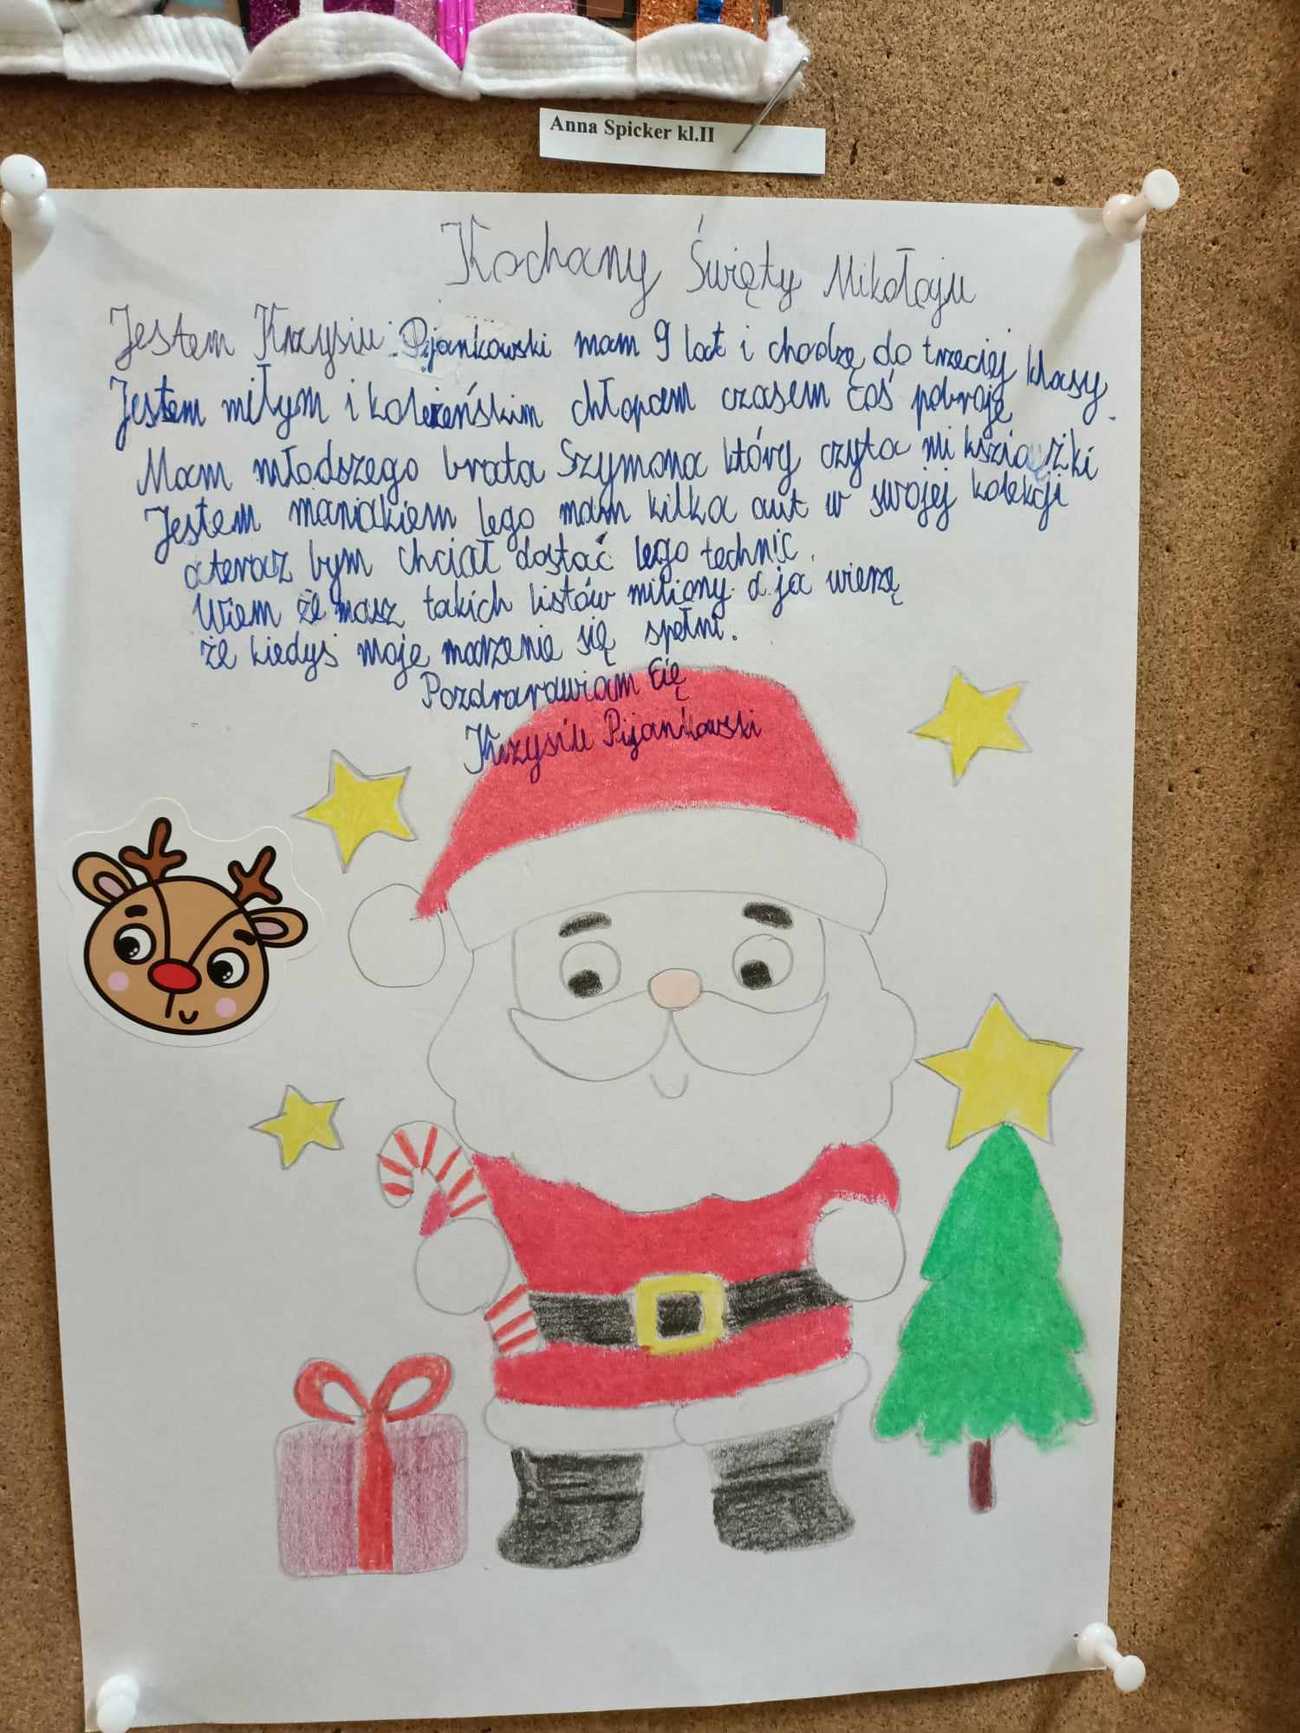 Anna Spicker kl.II
Kochany Święty Mikołaju
Jestem Krzysiu Pijankowski mam 9 lat i chodzę do trzeciej klasy
Jestem miłym i koleżeńskim chłopam czasem coś pobroję.
Mam młodszego brata Szymona który czyta mi ksziążki
Jestem maniakiem lego mam kilka aut w swojej kolekcji
a teraz bym chciał dostać lego technic.
Wiem że masz takich listów miliony a ja wierzę
że kiedyś moje marzenie się spełni.
Pozdrarawiam Cię
Krzysiu Pijankowski